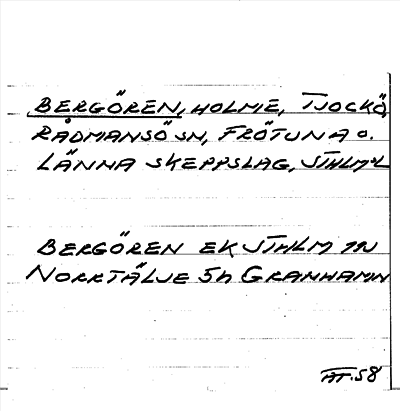 BERGÖREN, HOLME, TJOCKÖ,
RÅDMANSÖ SN, FRÖTUNA O.
LÄNNA SKEPPSLAG, STHLMSL
BERGÖREN EK STHLM
NORRTÄLJE 5h GRANHAMN